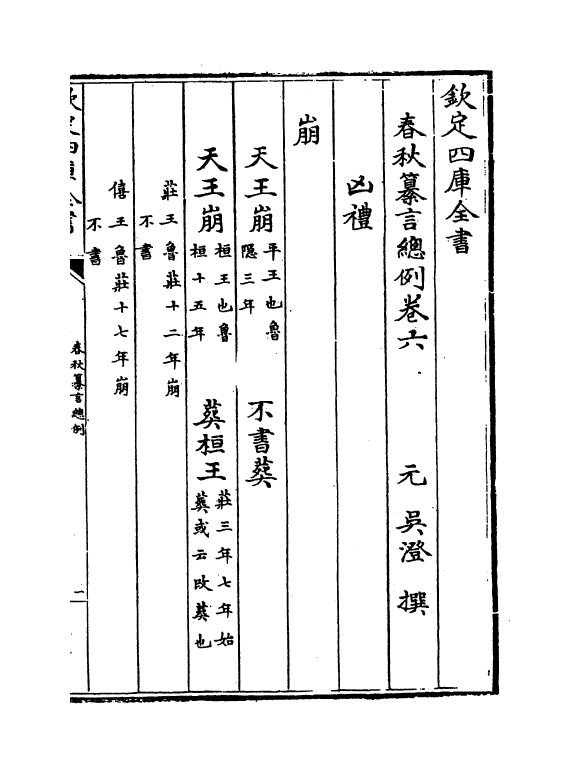 欽定四庫全書
春秋纂言總例卷六　元 吳澄 撰
凶禮
崩
天王崩 平王也魯隱三年　不書葬
天王崩 桓王也魯桓十五年　葬桓王 莊三年七年始葬或云改葬也
莊王魯莊十二年崩
不書
僖王魯莊十七年崩
不書
欽定四庫全書
春秋纂言總例